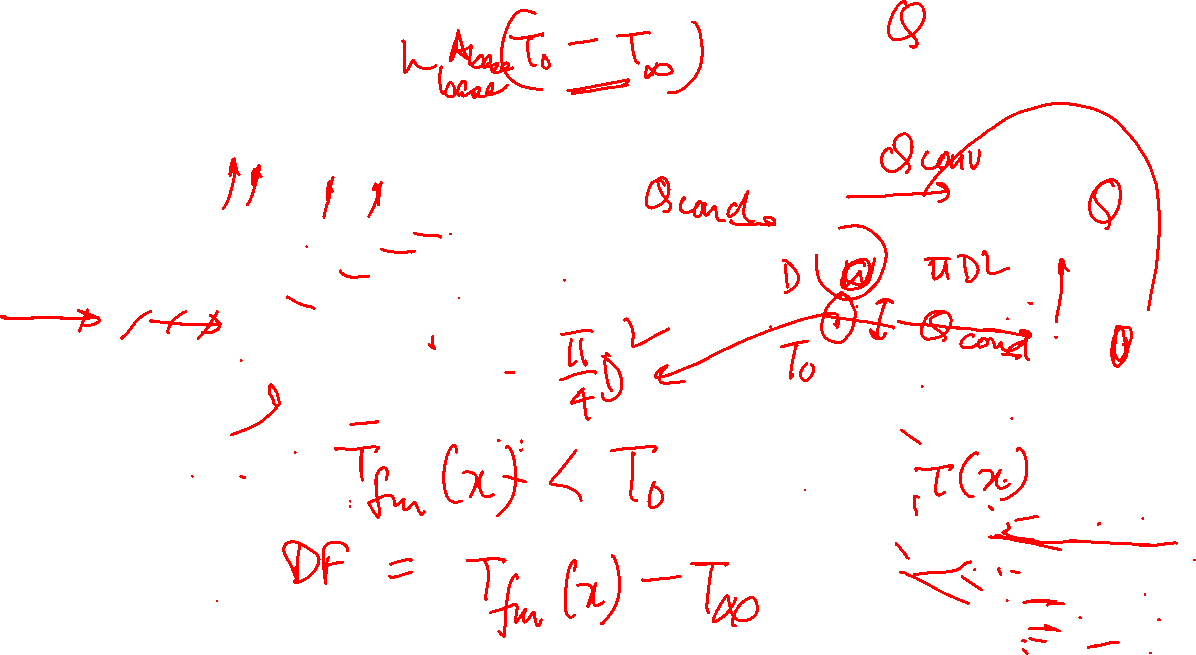 h_base A_base (T_0 - T_∞)
Q
Q conv
Q cond
Q
D
πD²
Q cond
T_0
π/4 D²
T_fin (x) < T_0
T(x)
DF = T_fin (x) - T_∞